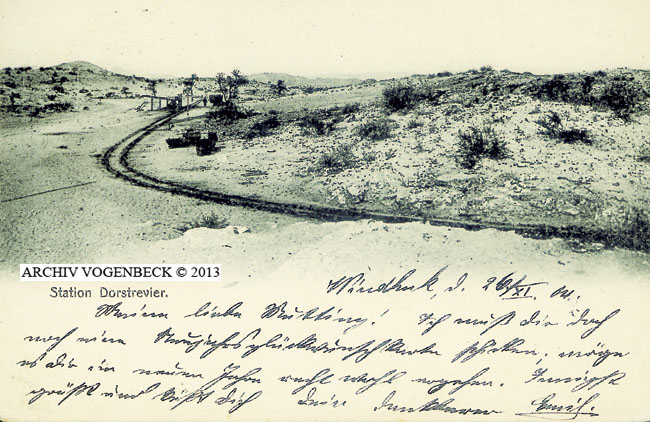 ARCHIV VOGENBECK © 2013
Station Dorstrevier.
Windhuk, d. 26/XI. 04.
Meine liebe Mutting! Ich muß Dir doch
noch eine Neujahrsglückwunschkarte schicken, möge
es Dir im neuen Jahre recht wohl ergehen. Innigst
grüßt und küßt Dich Dein dankbarer Emil.